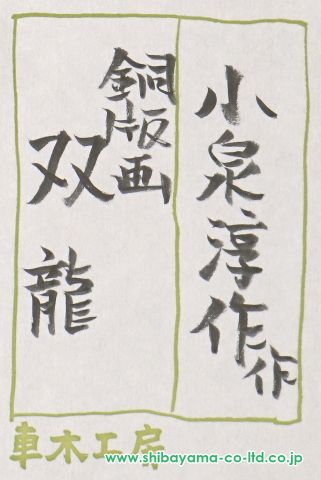 小泉淳作作
銅版画
双龍
車木工房
www.shibayama-co-ltd.co.jp